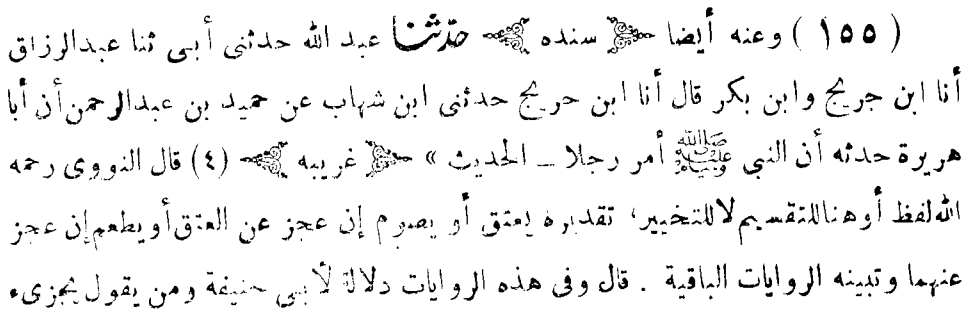 ( ١٥٥ ) وعنه أيضا ﴿ سنده ﴾ حدّثنا عبد الله حدثنى أبى ثنا عبدالرزاق
أنا ابن جريج وابن بكر قال أنا ابن جريج حدثنى ابن شهاب عن حميد بن عبدالرحمن أن أبا
هريرة حدثه أن النبي ﷺ أمر رجلا ــ الحديث » ﴿ غريبه ﴾ (٤) قال النووى رحمه
الله لفظ أو هنا للتقسيم لا للتخيير، تقديره يعتق أو يصوم إن عجز عن العتق أو يطعم إن عجز
عنهما وتبينه الروايات الباقية . قال وفى هذه الروايات دلالة لأبى حنيفة ومن يقول يجزىء